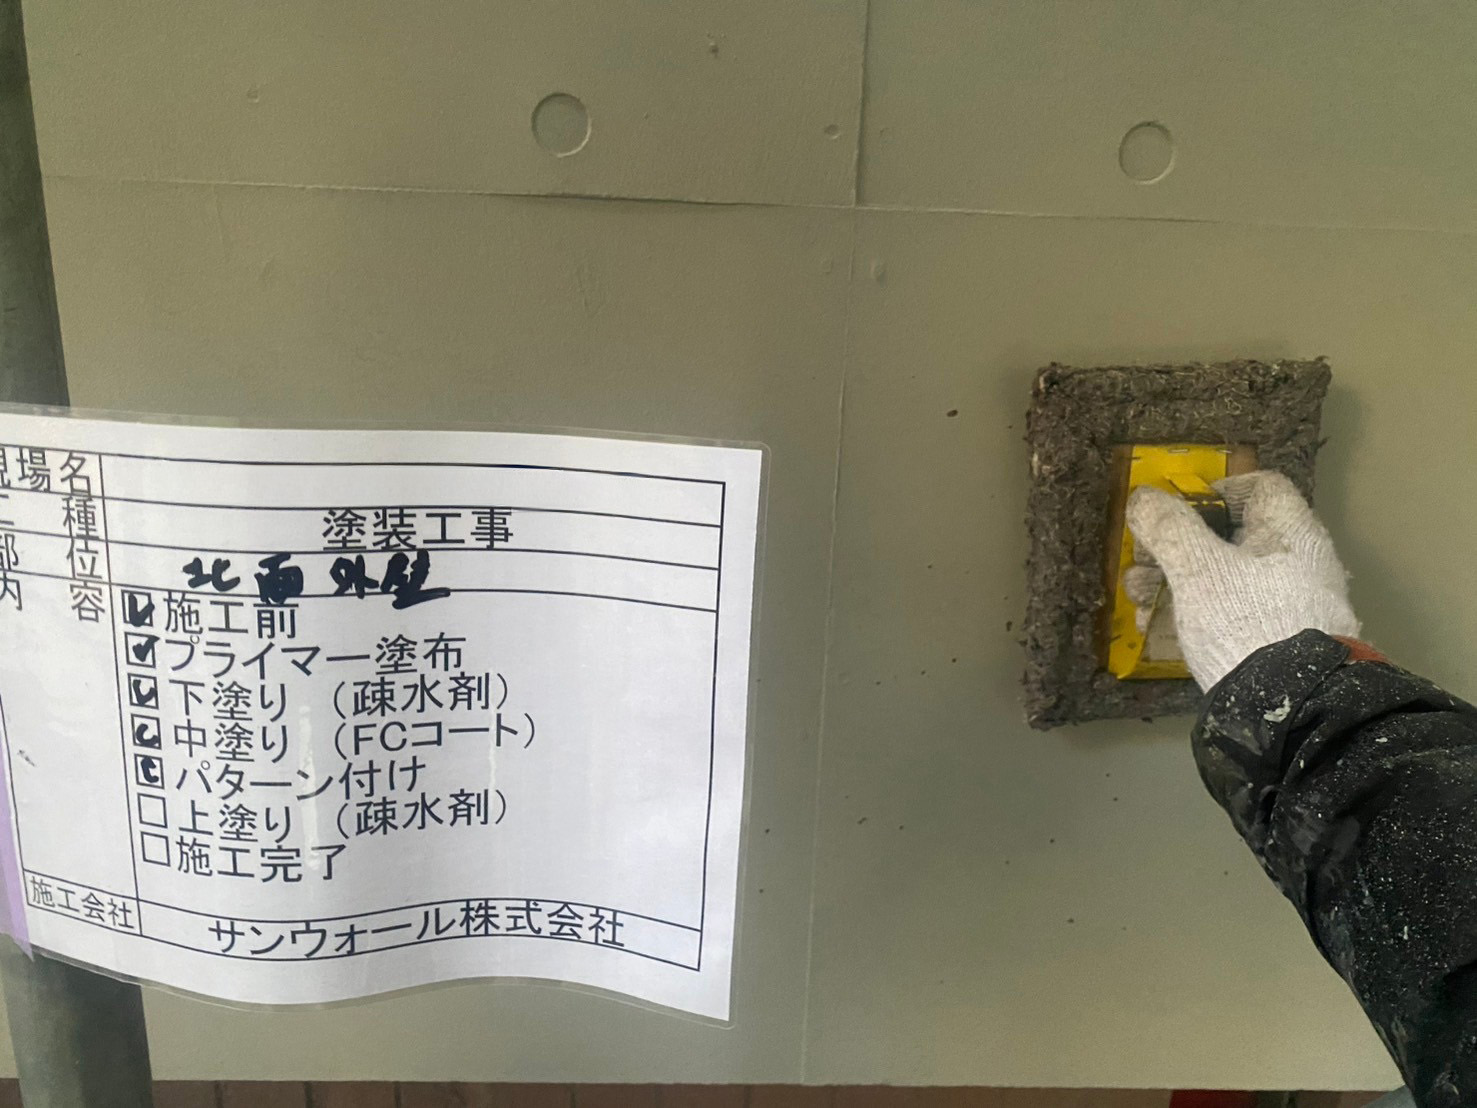 現場名
工種 塗装工事
部位 北面外壁
内容 施工前
プライマー塗布
下塗り (疎水剤)
中塗り (FCコート)
パターン付け
上塗り (疎水剤)
施工完了
施工会社 サンウォール株式会社